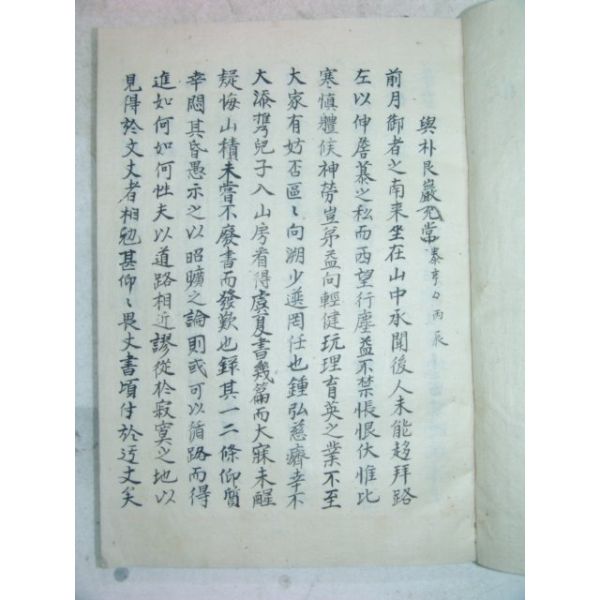 與朴艮巖允常 泰亨 丙辰
前月御者之南來坐在山中承聞後人未能趨拜路
左以伸詹慕之私而西望行塵益不禁悵恨伏惟比
寒愼軆候神勞豈弟益向輕健玩理育英之業不至
大家有妨否區〻向溯少選罔任也鍾弘慈癠幸不
大添携兒子入山房看得虞夏書幾篇而大寐未醒
疑悔山積未嘗不廢書而發歎也錄其一二條仰質
幸悶其昏愚示之以昭曠之論則或可以循路而得
進如何如何性夫以道路相近謬從於寂寞之地以
見得於文丈者相勉甚仰〻畏丈書頃付於迂丈矣